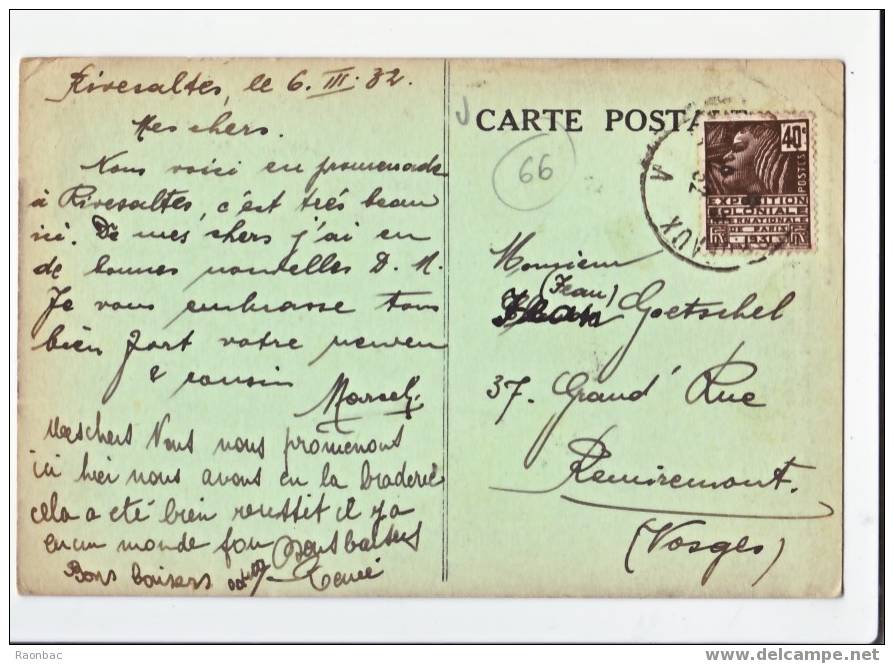 Rivesaltes, le 6. III. 32.
Mes chers.
Nous voici en promenade
à Rivesaltes, c'est très beau
ici. De mes chers j'ai eu
de bonnes nouvelles D. M.
Je vous embrasse tous
bien fort votre neveu
& cousin
Marcel
Mes chers Nous nous promenons
ici hier nous avons eu la braderie
cela a été bien reussit il y a
eu un monde fou
Bons baisers
Bons baisers Renée
CARTE POSTALE
66
40c
POSTES
EXPOSITION
COLONIALE
INTERNATIONALE
DE PARIS
1931
Monsieur
(Jean)
Goetschel
37. Grand' Rue
Remiremont.
(Vosges)
Raonbac
www.delcampe.net